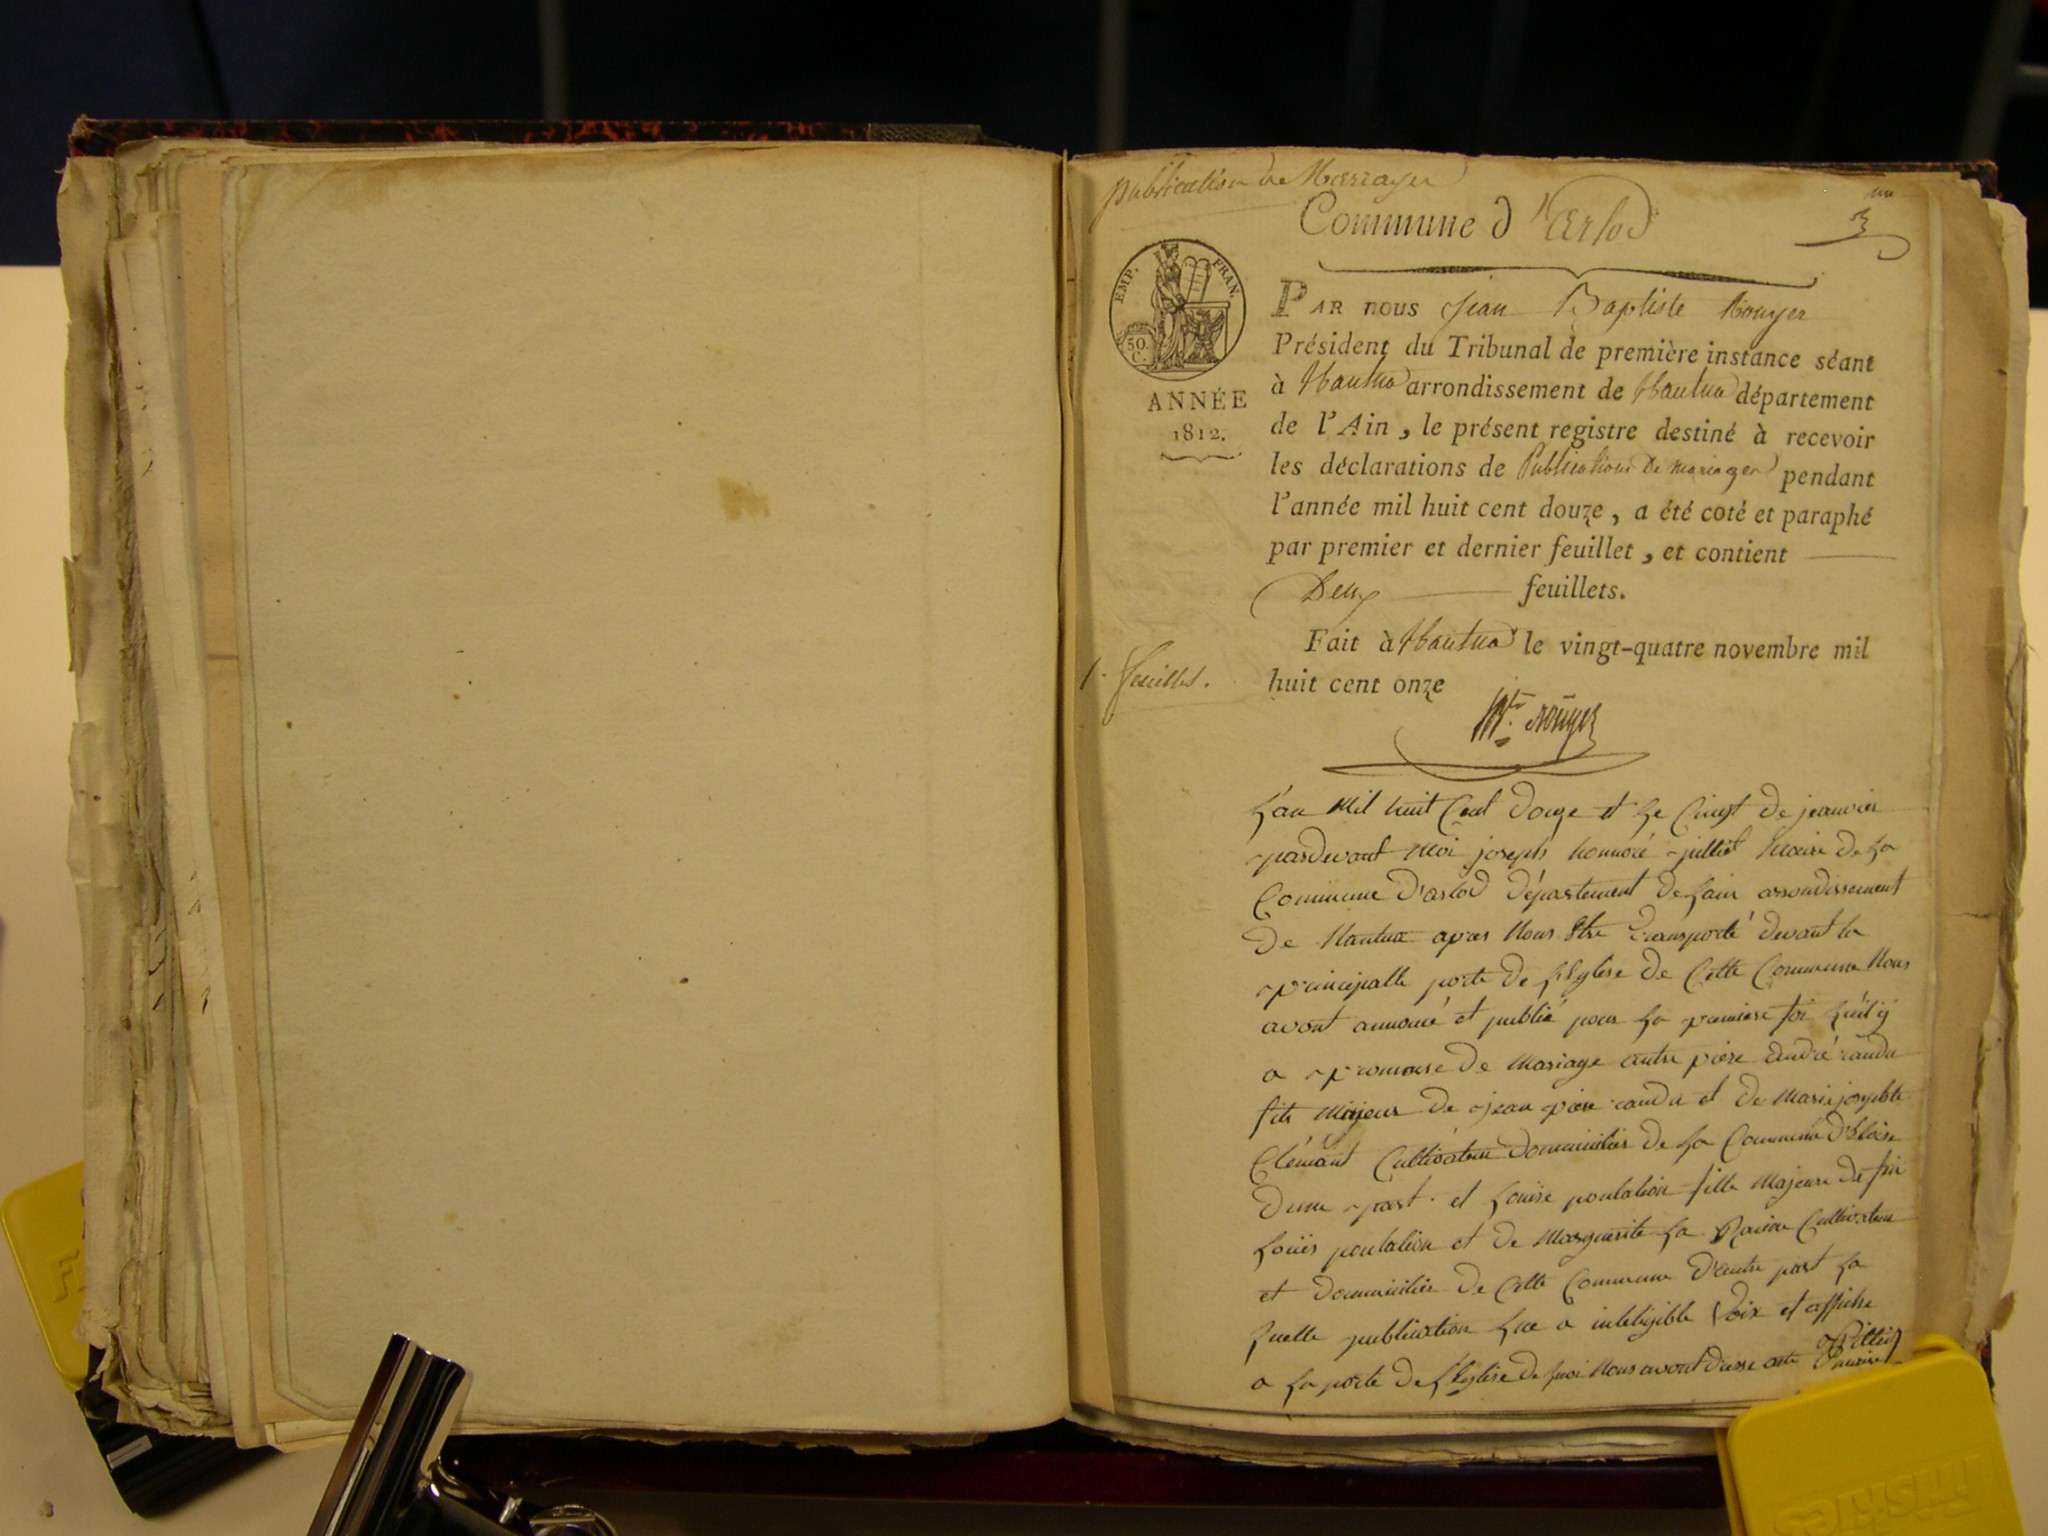 publication de Marrayes
Commune d'arlod
EMP. FRAN.
50. C.
ANNÉE
1812.
PAR nous Jean Baptiste Rouyer
Président du Tribunal de première instance séant
à Nantua arrondissement de Nantua département
de l'Ain, le présent registre destiné à recevoir
les déclarations de Publications de mariages pendant
l'année mil huit cent douze, a été coté et paraphé
par premier et dernier feuillet, et contient
Deux feuillets.
Fait à Nantua le vingt-quatre novembre mil
huit cent onze
1. feuillet.
Bte Rouyer
L'an Mil huit Cent Douze et le Cinq de jeanvier
pardevant Moi joseph honnoré julliet Maire de la
Commune D'arlod Département de Lain arrondissement
De Nantua apres Nous Etre transporté devant la
principalle porte de LEglise de Cette Commune Nous
avont annoncé et publié pour La premiere foi quil y
a promesse De Mariage entre piere André randu
fils Majeur De jean piere randu et De Marie josephte
Clémant Cultivateur Domicilier de La Commune D'Eloise
Dune part. et Louise poulalion fille Majeure De feu
Loüis poulalion et De Marguerite La Racine Cultivateur
et Domicilier De Cette Commune D'autre part La
quelle publication Lue a inteligible Voix et affiche
a La porte De LEglise De quoi Nous avont Dressé acte
Maire